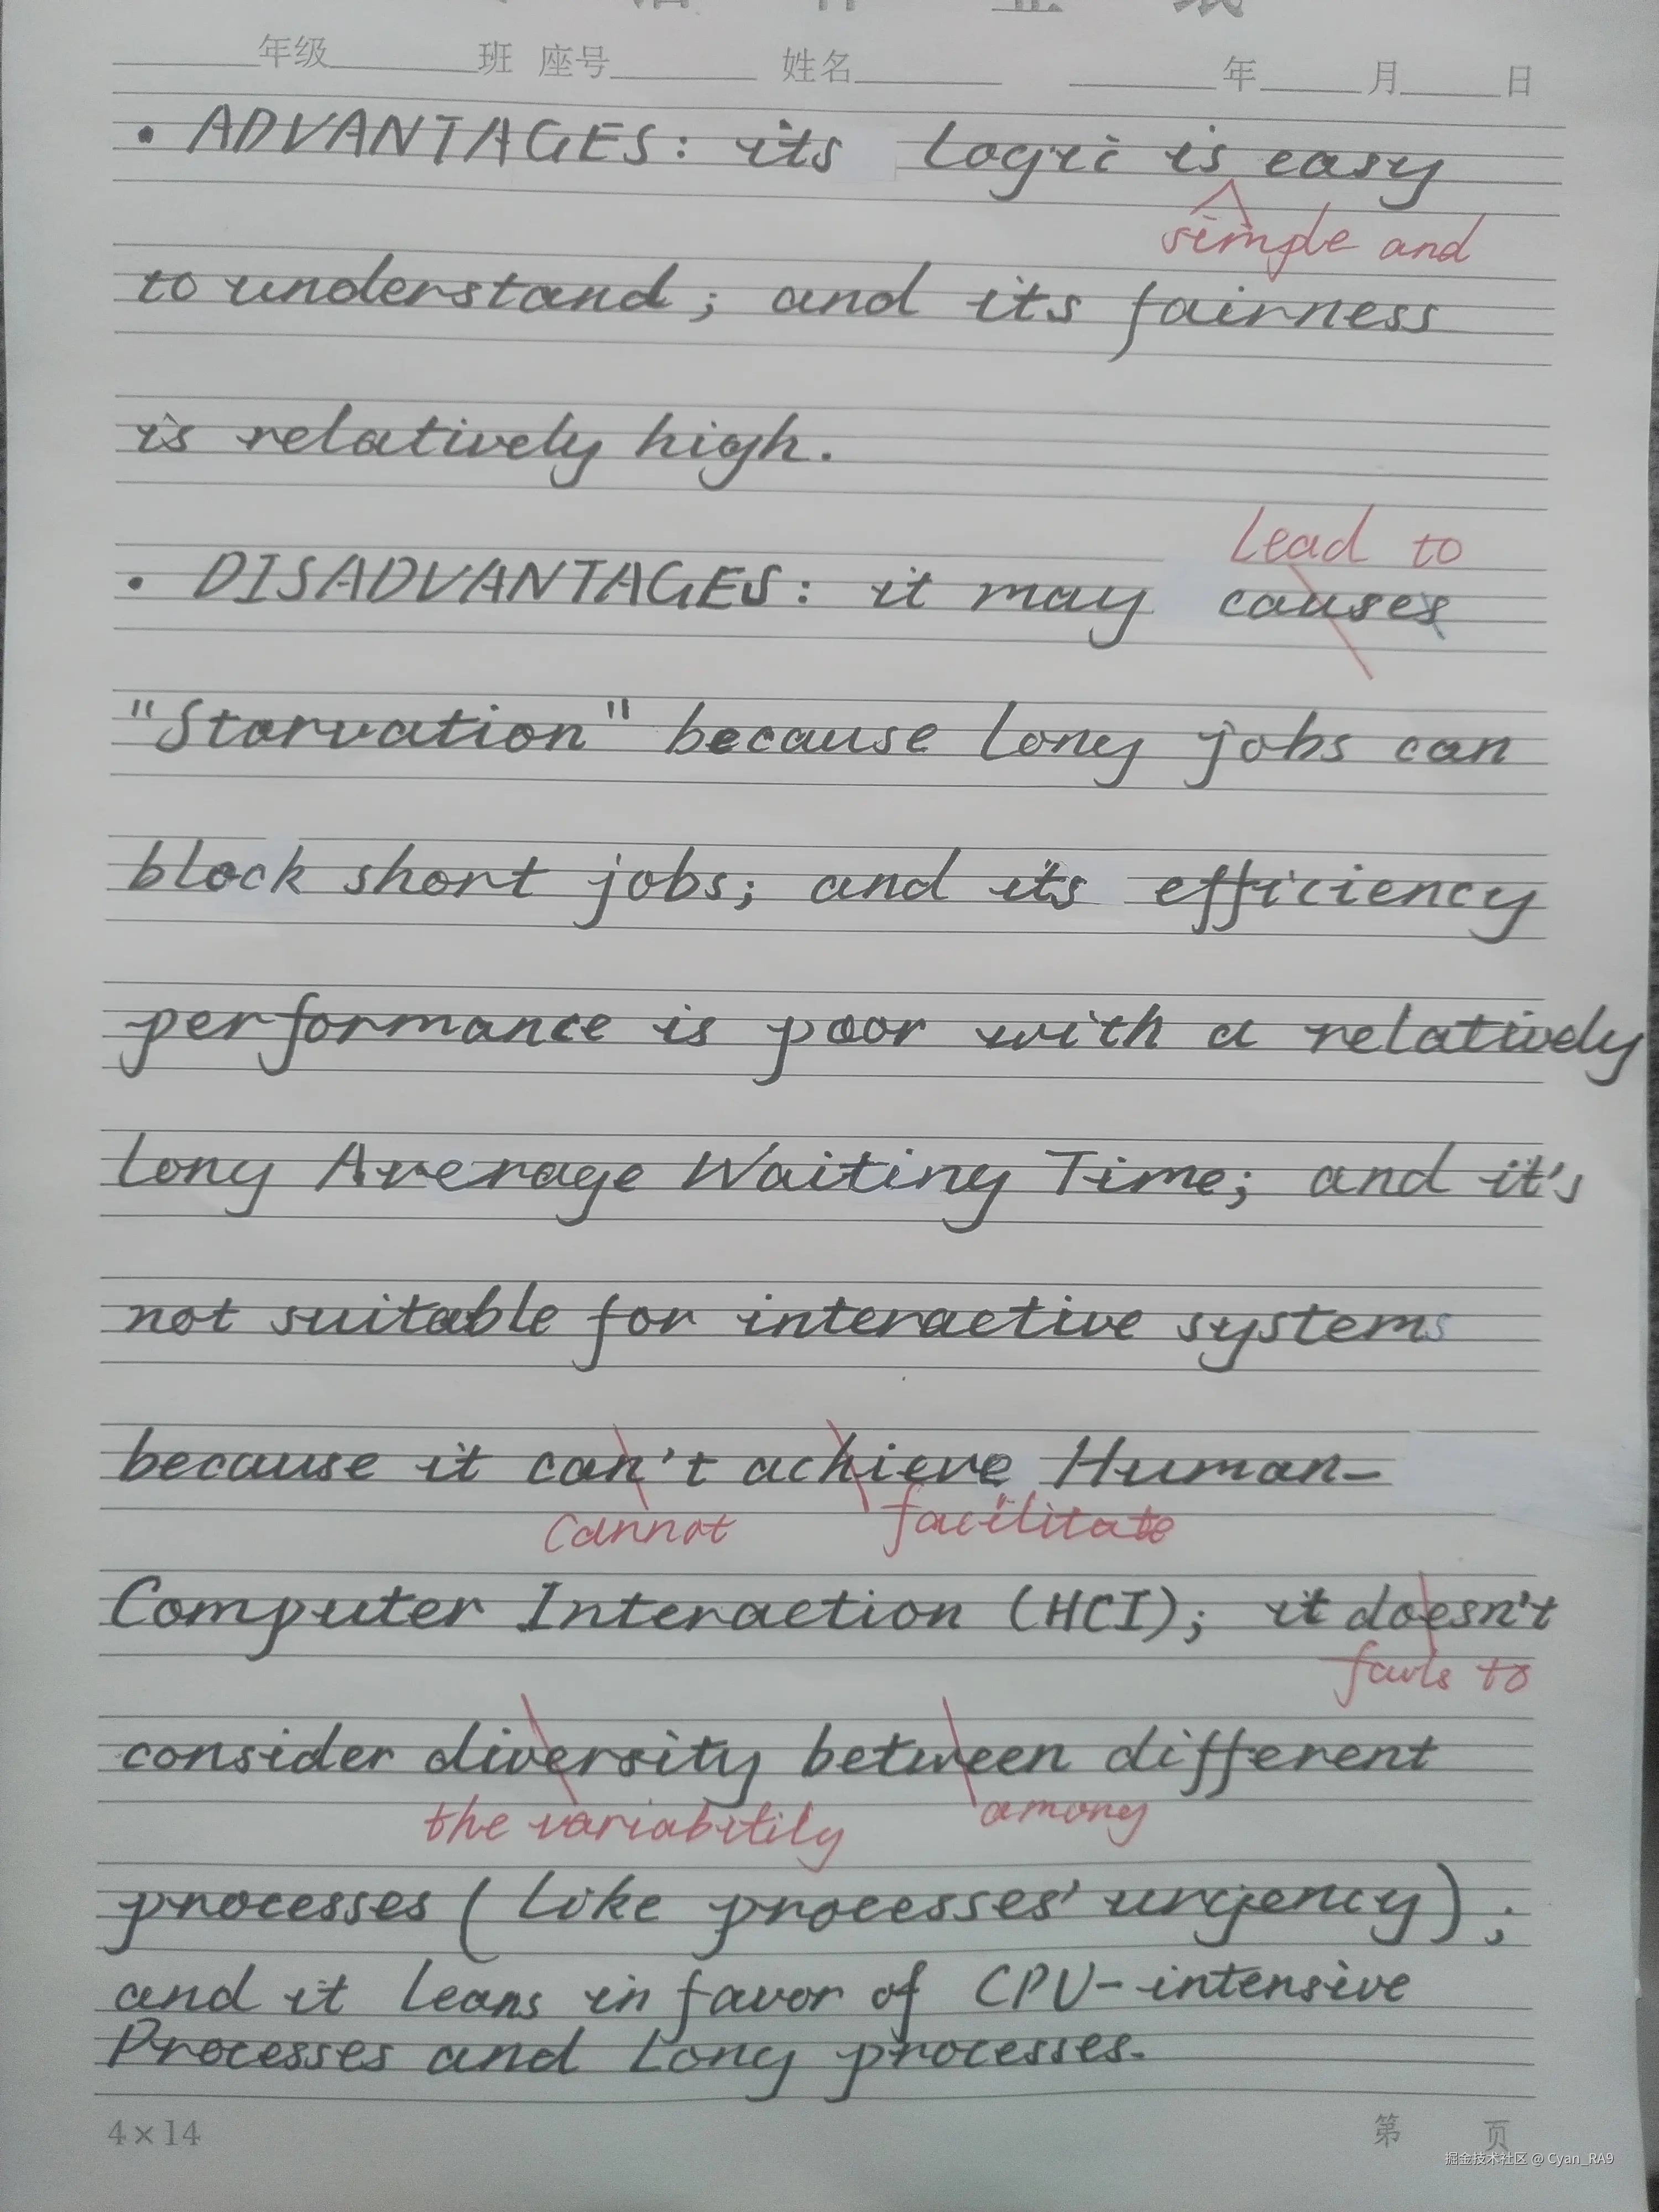 年级 班 座号 姓名 年 月 日
• ADVANTAGES: its logic is easy
simple and
to understand; and its fairness
is relatively high.
lead to
• DISADVANTAGES: it may causes
"Starvation" because long jobs can
block short jobs; and its efficiency
performance is poor with a relatively
long Average Waiting Time; and it's
not suitable for interactive systems
because it can't achieve Human-
cannot facilitate
Computer Interaction (HCI); it doesn't
fails to
consider diversity between different
the variability among
processes (like processes' urgency);
and it leans in favor of CPU-intensive
Processes and Long processes.
4×14 第 页
掘金技术社区 @ Cyan_RA9